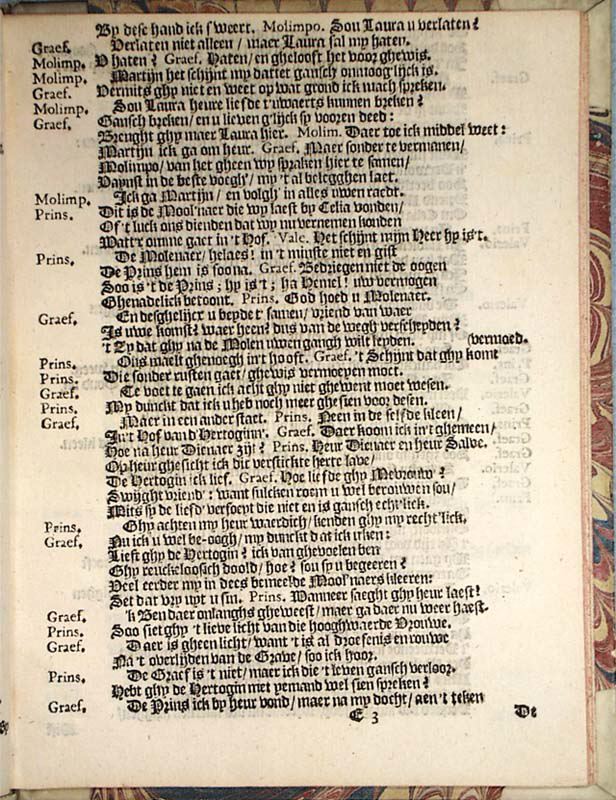 By dese hand ick s'weert. Molimpo. Sou Laura u verlaten?
Graef. Verlaten niet alleen/ maer Laura sal my haten.
Molimp. V haten? Graef. Haten/ en ghelooft het voor ghewis.
Molimp. Martijn het schijnt my dattet gansch onmoog'lijck is.
Graef. Vermits ghy niet en weet op wat grond ick mach spreken.
Molimp. Sou Laura heure liefde t'uwaerts kunnen breken?
Graef. Gansch breken/ en u lieven g'lijck sp vooren deed:
Brenght ghy maer Laura hier. Molim. Daer toe ick middel weet:
Martijn ick ga om heur. Graef. Maer sonder te vermanen/
Molimpo/ van het gheen wy spraken hier te samen/
Vaynst in de beste voegh/ my 't al belegghen laet.
Molimp. Ick ga Martijn/ en volgh' in alles uwen raedt.
Prins. Dit is de Mool'naer die wy laest by Celia vonden/
Of 't luck ons dienden dat wy nu vernemen konden
Watt'r omme gaet in 't Hof. Vale. Het schijnt mijn Heer hy is't.
Prins. De Molenaer/ helaes! in 't minste niet en gist
De Prins hem is soo na. Graef. Bedriegen niet de oogen
Soo is 't de Prins; hy is't; ha Hemel! uw vermogen
Ghenadelick betoont. Prins. God hoed u Molenaer.
Graef. En desghelijcx u beyde t' samen/ vriend van waer
Is uwe komst? waer heen? dus van de wegh verscheyden?
't Zy dat ghy na de Molen uwen gangh wilt leyden. (vermoed.
Prins. Ons maelt ghenoegh in't hooft. Graef. 't Schijnt dat ghy komt
Prins. Die sonder rusten gaet/ ghewis vermoeyen moet.
Graef. Te voet te gaen ick acht ghy niet ghewent moet wesen.
Prins. My dunckt dat ick u heb noch meer ghesien voor desen.
Graef. Maer in een ander staet. Prins. Neen in de selfde kleen/
In't Hof van d'Hertoginn'. Graef. Daer koom ick in't ghemeen/
Hoe na heur Dienaer zijt? Prins. Heur Dienaer en heur Salve.
Op heur ghesicht ick die verstickte herte lave/
De Hertogin ick lief. Graef. Hoe liefde ghy Mevrouw?
Swijght vriend: want sulcken roem u wel berouwen sou/
Mits sp de liefd' versoeyt die niet en is gansch echt'lick.
Prins. Ghy achten my heur waerdich/ kenden ghy my recht'lick.
Graef. Nu ick u wel be-oogh/ my dunckt dat ick u ken:
Lieft ghy de Hertogin? ick van ghevoelen ben
Ghy reuckeloosich doold/ hoe? sou sy u begeeren?
Veel eerder my in dees bemeelde Mool'naers kleeren:
Set dat vry uyt u sin. Prins. Wanneer saeght ghy heur laest?
Graef. 'k Ben daer onlanghs gheweest/ maer ga daer nu weer haest.
Prins. Soo siet ghy 't lieve licht van die hooghwaerde Vrouwe.
Graef. Daer is gheen licht/ want 't is al droefenis en rouwe
Na 't overlijden van de Grave/ soo ick hoor.
Prins. De Graef is 't niet/ maer ick die 't leven gansch verloor.
Hebt ghy de Hertogin met yemand wel sien spreken?
Graef. De Prins ick by heur vond/ maer na my docht/ aen 't teken
E 3 De